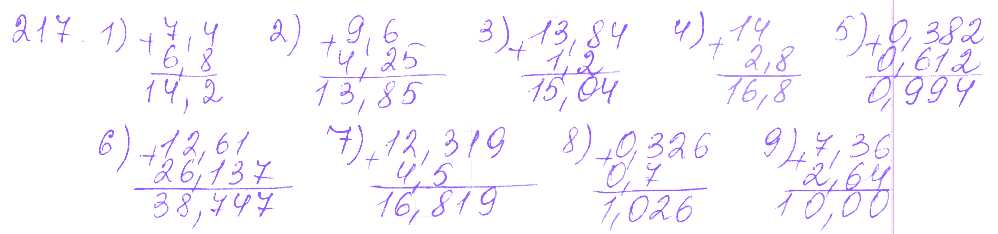 217. 1) +7,4 2) +9,6 3) +13,84 4) +14 5) +0,382
6,8 4,25 1,2 2,8 0,612
14,2 13,85 15,04 16,8 0,994
6) +12,61 7) +12,319 8) +0,326 9) +7,36
26,137 4,5 0,7 2,64
38,747 16,819 1,026 10,00